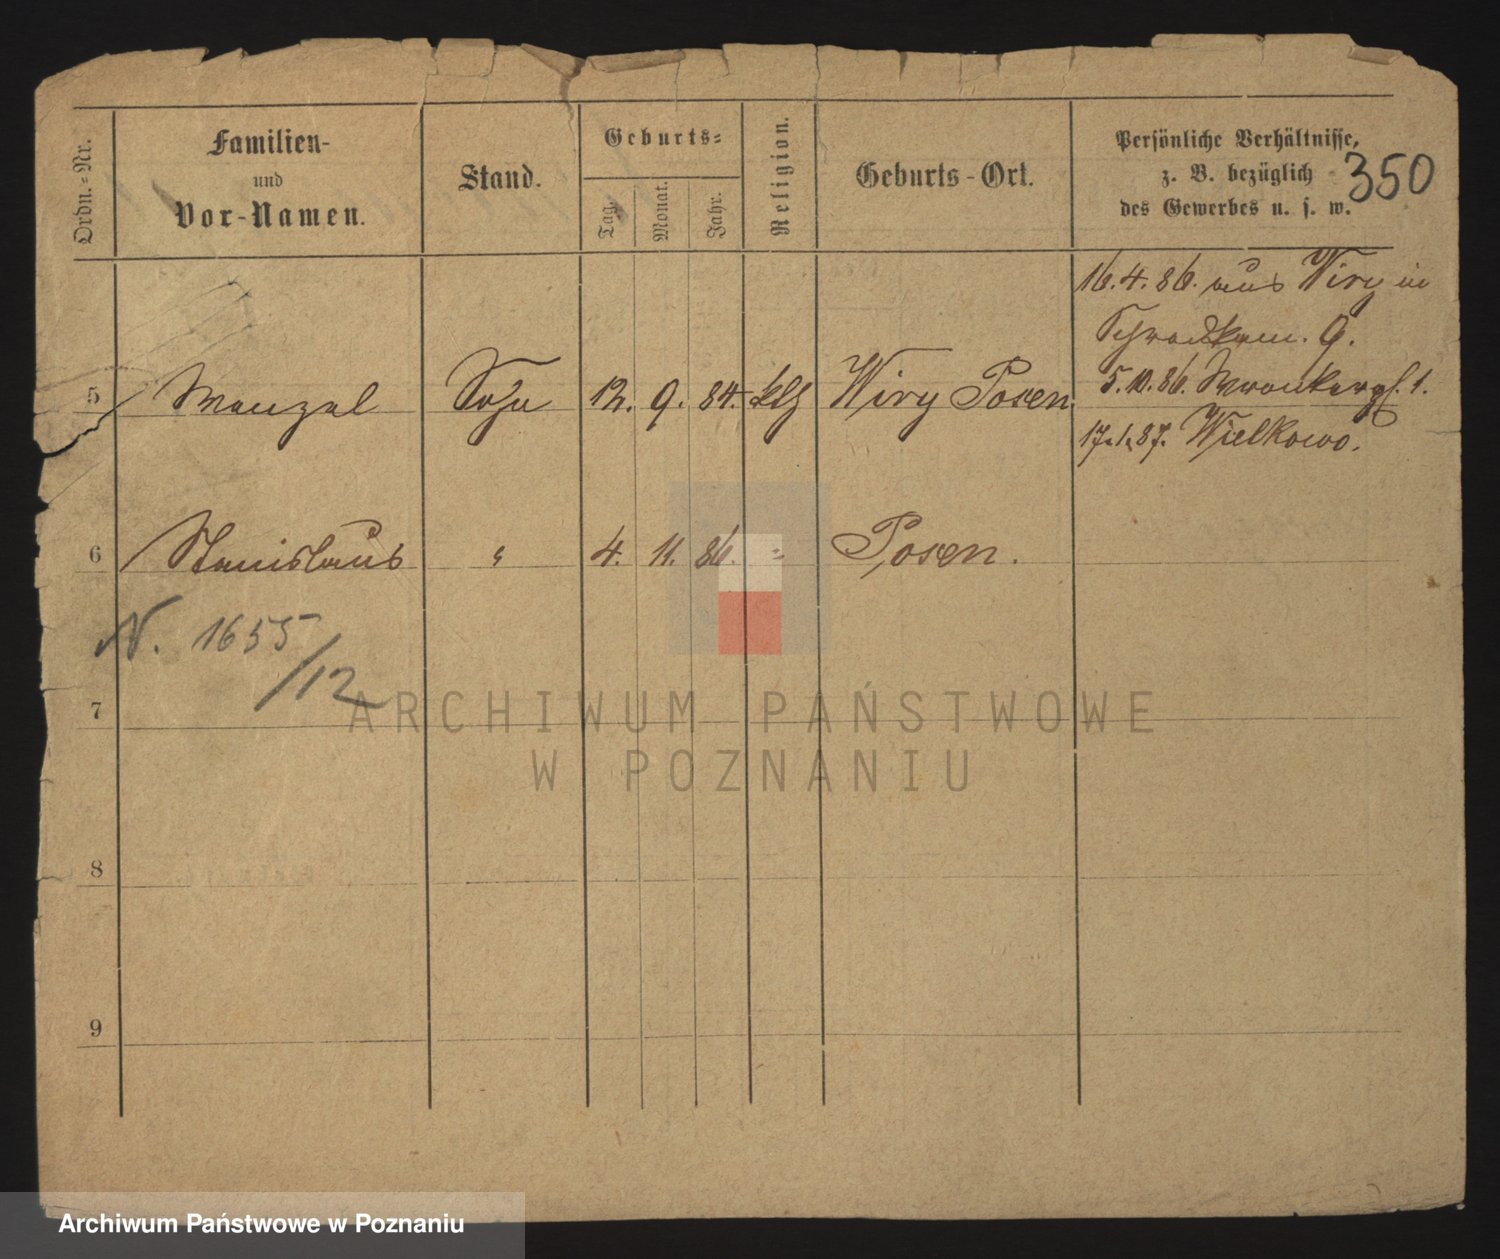 Ordn.-Nr.
Familien-
und
Vor-Namen.
Stand.
Geburts-
Tag. Monat. Jahr.
Religion.
Geburts-Ort.
Persönliche Verhältnisse,
z. B. bezüglich
des Gewerbes u. s. w.
350
16. 4. 86. aus Wiry in
9.
5 Wenzel Sohn 12. 9. 84. kth Wiry Posen
5. 10. 86. Wronkerpl. 1.
17. 1. 87. Wielkowo.
6 Stanislaus " 4. 11. 86. " Posen.
N. 1655
/12
7
8
9
ARCHIWUM PAŃSTWOWE
W POZNANIU
Archiwum Państwowe w Poznaniu